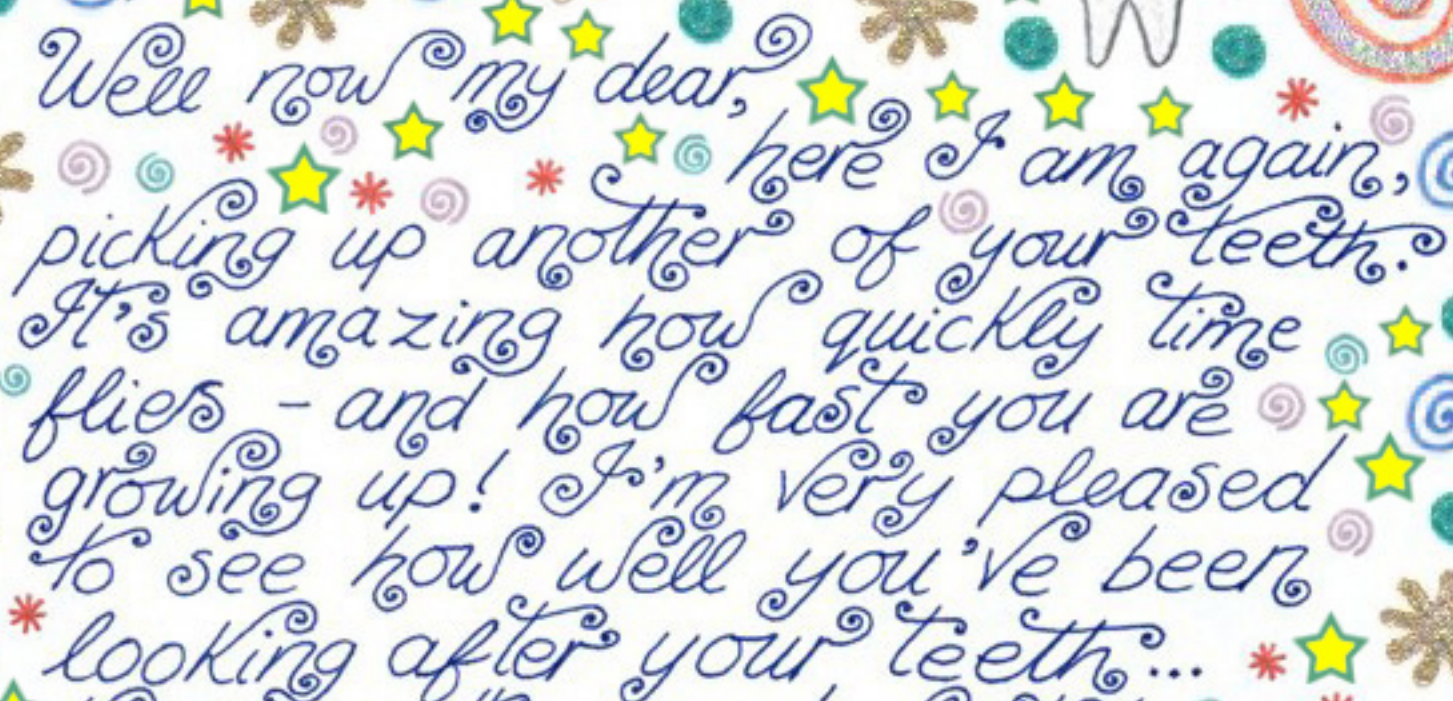 Well now my dear,
here I am again,
picking up another of your teeth.
It's amazing how quickly time
flies - and how fast you are
growing up! I'm very pleased
to see how well you've been
looking after your teeth...